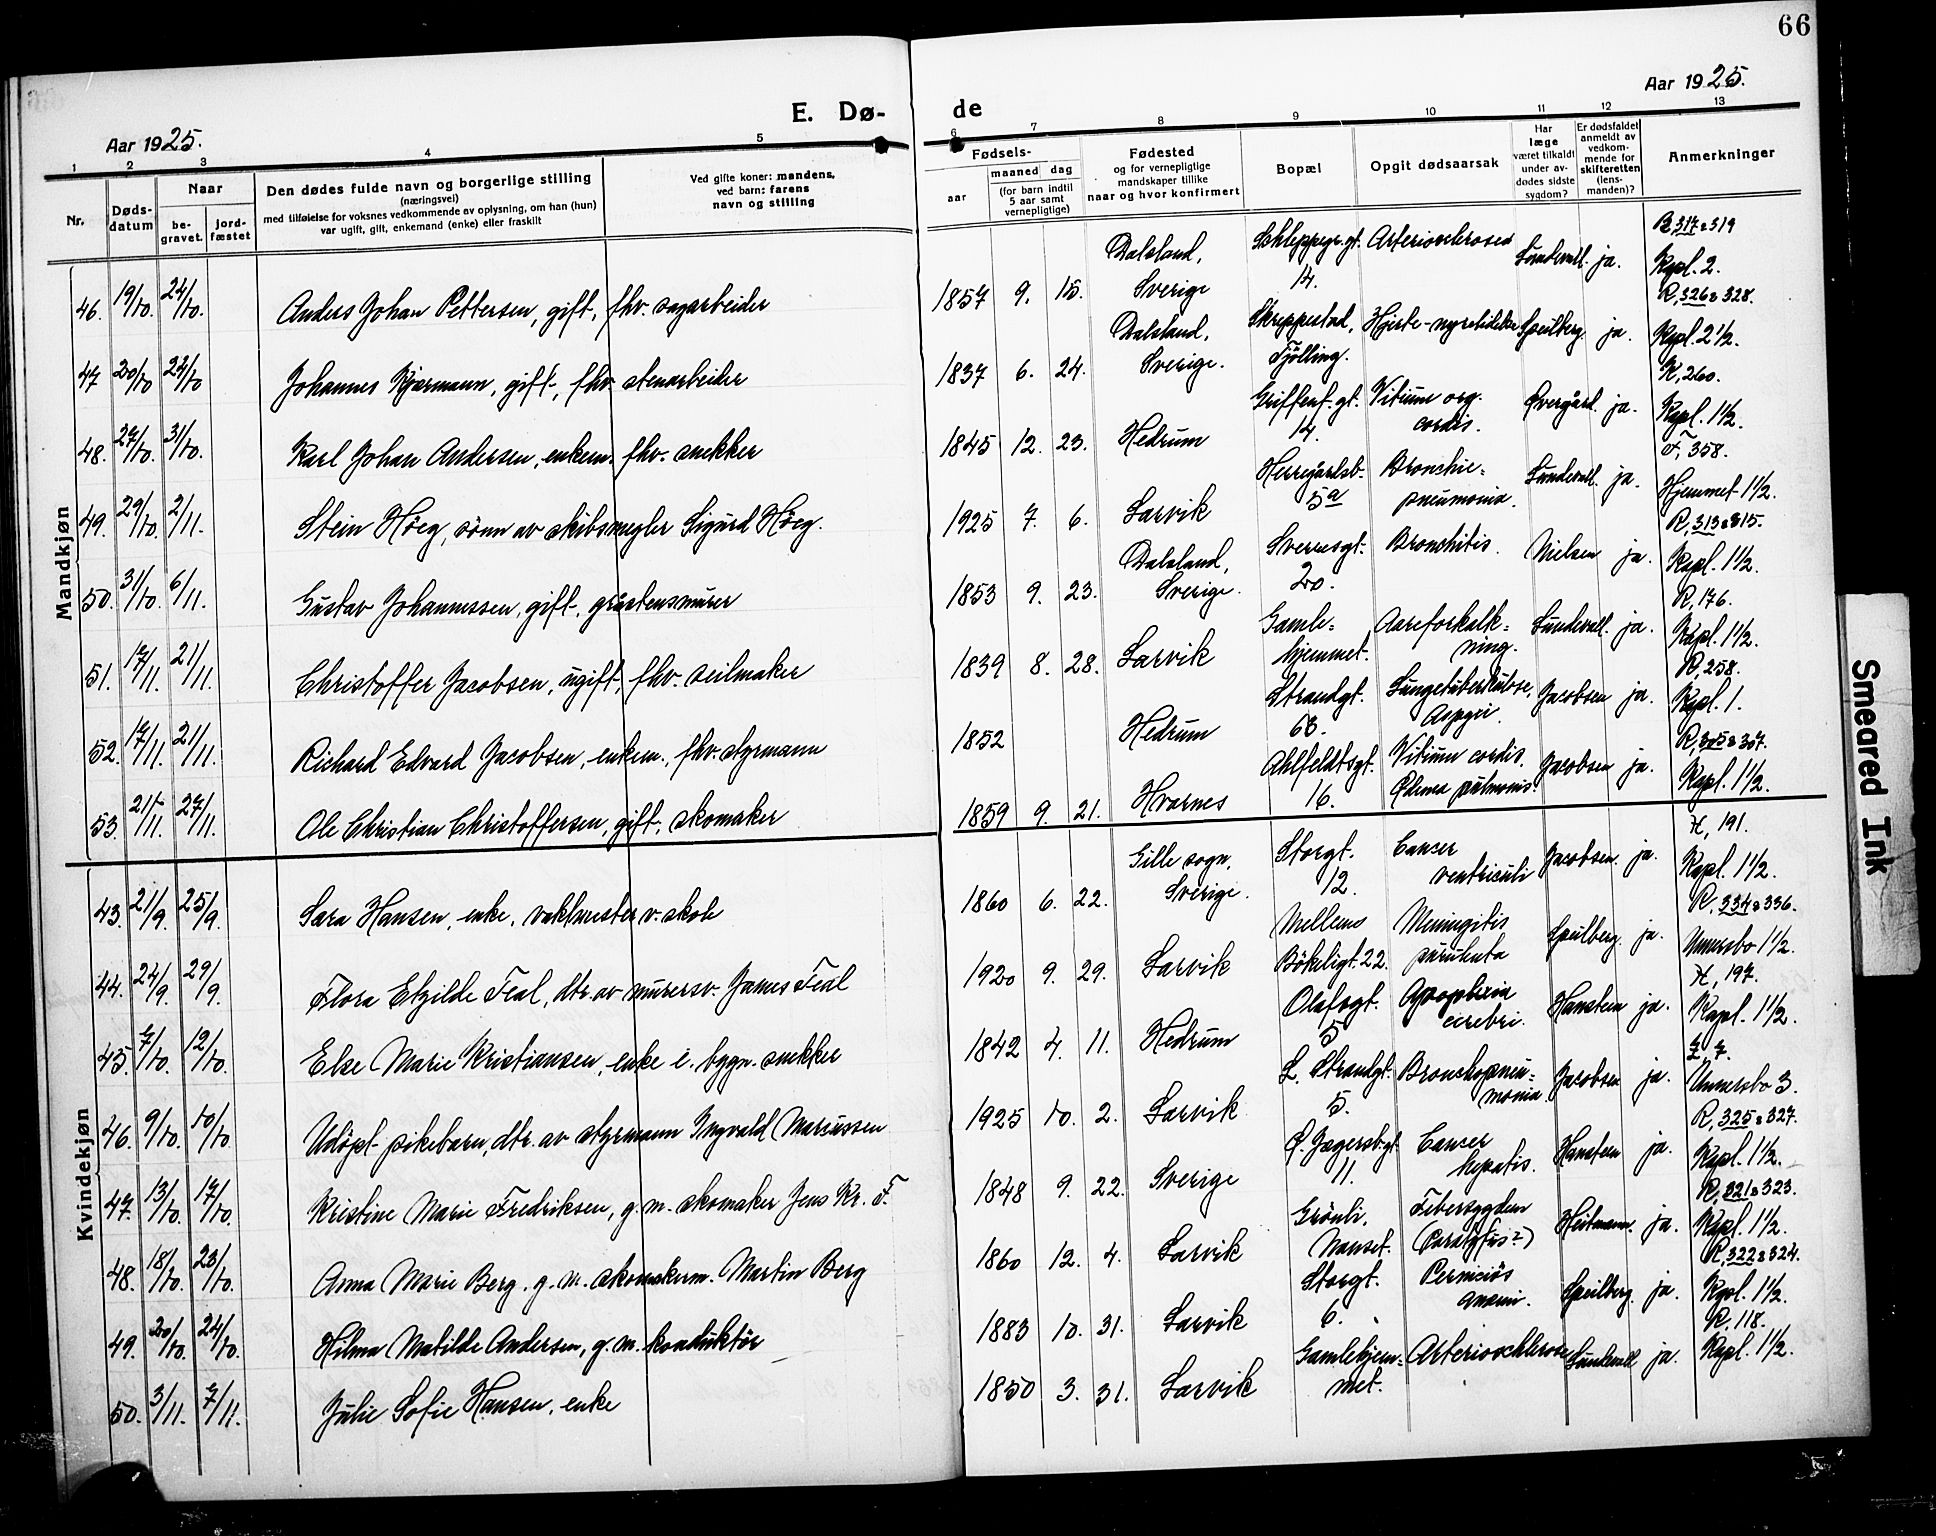 66
Aar 1925.
E. Dø-
de
Aar 1925.
1 2 3 4 5 6 7 8 9 10 11 12 13
Nr.
Døds-
datum
Naar
be-
gravet.
jord-
fæstet
Den dødes fulde navn og borgerlige stilling
(næringsvei)
med tilføielse for voksnes vedkommende av oplysning, om han (hun)
var ugift, gift, enkemand (enke) eller fraskilt
Ved gifte koner: mandens,
ved barn: farens
navn og stilling
Fødsels-
aar
maaned dag
(for barn indtil
5 aar samt
vernepligtige)
Fødested
og for vernepligtige
mandskaper tillike
naar og hvor konfirmert
Bopæl
Opgit dødsaarsak
Har
læge
været tilkaldt
under av-
dødes sidste
sygdom?
Er dødsfaldet
anmeldt av
vedkom-
mende for
skifteretten
(lens-
manden)?
Anmerkninger
Mandkjøn
46. 19/10. 24/10. Anders Johan Pettersen, gift, fhv. sagarbeider 1857 9. 15. Dalsland, Sverige Schleppegr.gt. 14. Arteriosclerose Sundevall. ja. R, 317 & 319 Kapl. 2.
47 20/10 24/10 Johannes Kjærmann, gift, fhv. stenarbeider 1837 6. 24. Dalsland, Sverige. Skreppestad, Tjølling. Hjerte-nyrelidelse Speilberg ja. R, 326 & 328. Kapl. 2 1/2.
48. 27/10. 31/10. Karl Johan Andersen, enkem. fhv. snekker 1845 12. 23. Hedrum Griffenf.gt. 14. Vitium org. cordis. Øvergård. ja. K, 260. Kapl. 1 1/2.
49. 29/10. 2/11. Stein Höeg, sönn av skibsmegler Sigurd Höeg. 1925 7. 6. Larvik Herregårdsb. 5a Bronchie= pneumonia. Sundevall. ja. F, 358. Hjemmet 1 1/2.
50. 31/10. 6/11. Gustav Johannessen, gift, gråstensmurer 1853 9. 23. Dalsland, Sverige. Sverresgt. 20. Bronchitis. Nielsen ja. R, 313 & 315. Kapl. 1 1/2.
51. 17/11. 21/11. Christoffer Jacobsen, ugift, fhv. seilmaker 1839 8. 28. Larvik Gamle= hjemmet. Aareforkalk= ning. Sundevall. ja. R, 176. Kapl. 1 1/2.
52. 17/11. 21/11. Richard Edvard Jacobsen, enkem., fhv. styrmann 1852 Hedrum Strandgt. 63. Lungetuberkulose, Jacobsen ja. R, 258. Kapl. 1.
53. 21/11. 27/11. Ole Christian Christoffersen, gift, skomaker 1859 9. 21. Hvarnes Ahlfeldtsgt. 16. Vitium cordis. Ødema pulmonis. Jacobsen ja. R, 305 & 307. Kapl. 1 1/2.
Kvindekjøn
43. 21/9. 25/9. Sara Hansen, enke, v. skole 1860 6. 22. Gille sogn, Sverige. Storgt. 12. Cancer ventriculi Jacobsen. ja. H, 191. Kapl. 1 1/2.
44. 24/9. 29/9. Flora Elzilde Feal, dtr. av murersv. James Feal 1920 9. 29. Larvik Mellem Bökeligt. 22. Meningitis purulenta Speilberg. ja. R, 334 & 336. Unnersbo 1 1/2.
45. 7/10. 12/10. Else Marie Kristiansen, enke e. bygn.snekker 1842 4. 11. Hedrum Olafsgt. 5 Apoplexia cerebri. Hanstein ja. H, 197. Kapl. 1 1/2.
46. 9/10. 10/10 Udöpt pikebarn, dtr. av styrmann Ingvald Marcussen 1925 10. 2. Larvik L. Strandgt. 5. Bronchopneu= monia. Jacobsen ja. 7. Unnersbo 3.
47. 13/10. 17/10. Kristine Marie Fredriksen, g.m. skomaker Jens Kr. F. 1848 9. 22. Sverige Ø. Jegersb.gt 11. Cancer hepatis. Hanstein ja. R, 325 & 327. Kapl. 1 1/2.
48. 18/10. 23/10 Anna Marie Berg, g.m. skomakerm. Martin Berg 1860 12. 4. Larvik Grönli, Nanset. Febersygdom (Paratyfus?) Heitmann. ja. R, 321 & 323. Kapl. 1 1/2.
49. 20/10. 24/10. Hilma Matilde Andersen, g.m. konduktör 1883 10. 31. Larvik Storgt. 6. Perniciös anæmi. Speilberg. ja. R, 322 & 324. Kapl. 1 1/2.
50. 3/11. 7/11. Julie Sofie Hansen, enke 1850 3. 31. Larvik Gamlehjem= met. Arteriosclerose Sundevall ja. R. 118. Kapl. 1 1/2.
Smeared Ink